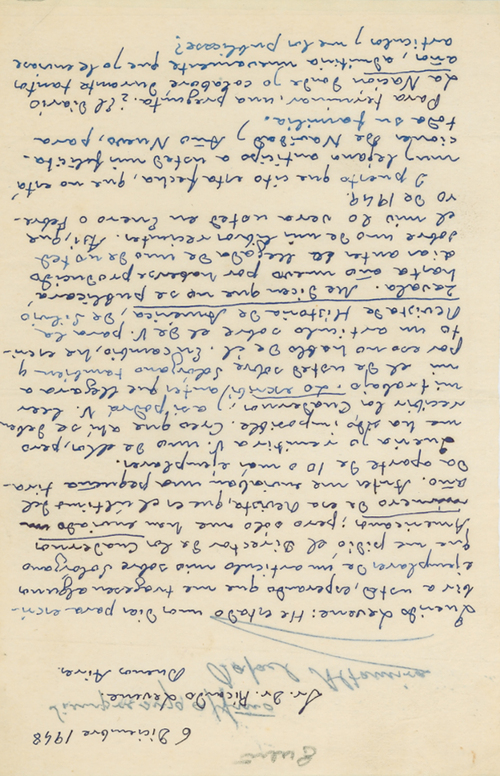 6 Diciembre 1948
Sr. Dr. Ricardo Levene,
Buenos Aires.
Altamira
Querido Levene: He estado unos dias para escri-
bir a usted, esperando que me trajesen algunos
ejemplares de un artículo mio sobre Solorzano
que me pidió el Director de los Cuadernos
Americanos; pero solo me han enviado un
número de esa Revista, que es el último del
año. Antes me enviaban una pequeña tira-
da aparte de 10 o más ejemplares.
Queria yo remitir a V. uno de ellos, pero
me ha sido imposible. Creo que ahi se deben
recibir los Cuadernos; y asi podrá V. leer
mi trabajo. Lo escribí antes que llegara a
mi el de usted sobre Solorzano tambien y
por eso no hablo de él. En cambio, he escri-
to un artículo sobre el de V. para la
Revista de Historia de America, de Silvio
Zavala. Me dicen que no se publicará
hasta año nuevo por haberse producido
dias antes la llegada de uno de usted
sobre uno de mis libros recientes. Asi, que,
el mio lo vera usted en Enero o Febre-
ro de 1949.
Y puesto que cito esta fecha, que no está
muy lejana anticipo a usted mi felicita-
ción de Navidad y Año Nuevo, para
toda su familia.
Para terminar, una pregunta. ¿El diario
La Nacion donde yo colaboré durante tantos
años, admitiria nuevamente que yo le enviase
artículos y me los publicase?